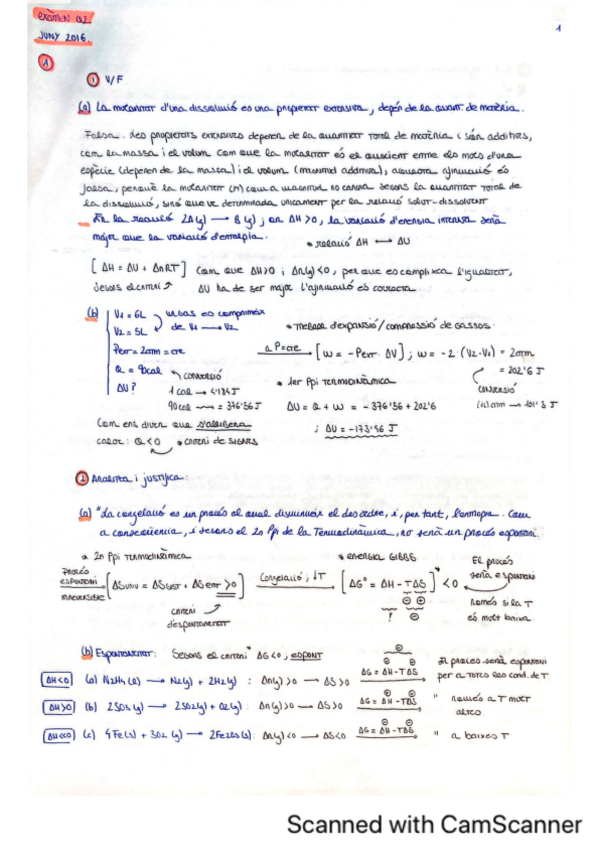 exàmen Q2
JUNY 2016.
1
A
1 V/F
(a) La molaritat d'una dissolució és una propietat extensiva, depèn de la quant. de matèria.
Falsa. Les propietats extensives depenen de la quantitat total de matèria i són additives,
com la massa i el volum. Com que la molaritat és el quocient entre els mols d'una
espècie (depenen de la massa) i el volum (magnitud additiva), aquesta afirmació és
falsa, perquè la molaritat (M) com a magnitud no canvia segons la quantitat total de
la dissolució, sinó que ve determinada unicament per la relació solut-dissolvent
En la reacció 2A(g) → B(g); on ΔH>0, la variació d'energia interna serà
major que la variació d'entalpia.
* relació ΔH ↔ ΔU
[ΔH = ΔU + ΔnRT] Com que ΔH>0 i Δn(g)<0, per que es compleixi l'igualtat,
segons el criteri ↗ ΔU ha de ser major. L'afirmació és correcta
(b) V1 = 6L
V2 = 5L
el gas es comprimeix
de V1 → V2
* Treball d'expansió/compressió de gasos.
Pext = 2atm = cte
a P=cte → [W = -Pext · ΔV]; W = -2 · (V2-V1) = 2atm
Q = 90cal
conversió
* 1er Ppi termodinàmica
= 202'6 J
ΔU?
1 cal → 4'184J
conversió
90cal → = 376'56 J
ΔU = Q + W = -376'56 + 202'6
(1L)atm → 101'3 J
Com ens diuen que s'allibera
; ΔU = -173'96 J
calor: Q<0
* criteri de signes
2 Analitza i justifica:
(a) "La congelació és un procés el qual disminueix el desordre, i, per tant, l'entropia. Com
a conseqüència, i segons el 2n Ppi de la Termodinàmica, no serà un procés espontani.
* 2n Ppi Termodinàmica
* energia GIBBS
El procés
serà espontani
Procés
espontani
irreversible
[ΔSuniv = ΔSsist + ΔSent >0]
Congelació, ↓T
[ΔG° = ΔH - TΔS] <0
criteri
d'espontaneïtat
? ⊖ ⊖ ⊖
només si la T
és molt baixa
(b) Espontaneïtat: Segons el criteri " ΔG<0, espont
El procés serà espontani
per a totes les cond. de T
ΔH<0 (a) N2H4(l) → N2(g) + 2H2(g) : Δn(g)>0 → ΔS>0 ΔG = ΔH-TΔS
ΔH>0 (b) 2SO3(g) → 2SO2(g) + O2(g): Δn(g)>0 → ΔS>0 ΔG = ΔH-TΔS " només a T molt
altes
ΔH<0 (c) 4Fe(s) + 3O2(g) → 2Fe2O3(s): Δn(g)<0 → ΔS<0 ΔG = ΔH-TΔS " a baixes T
Scanned with CamScanner